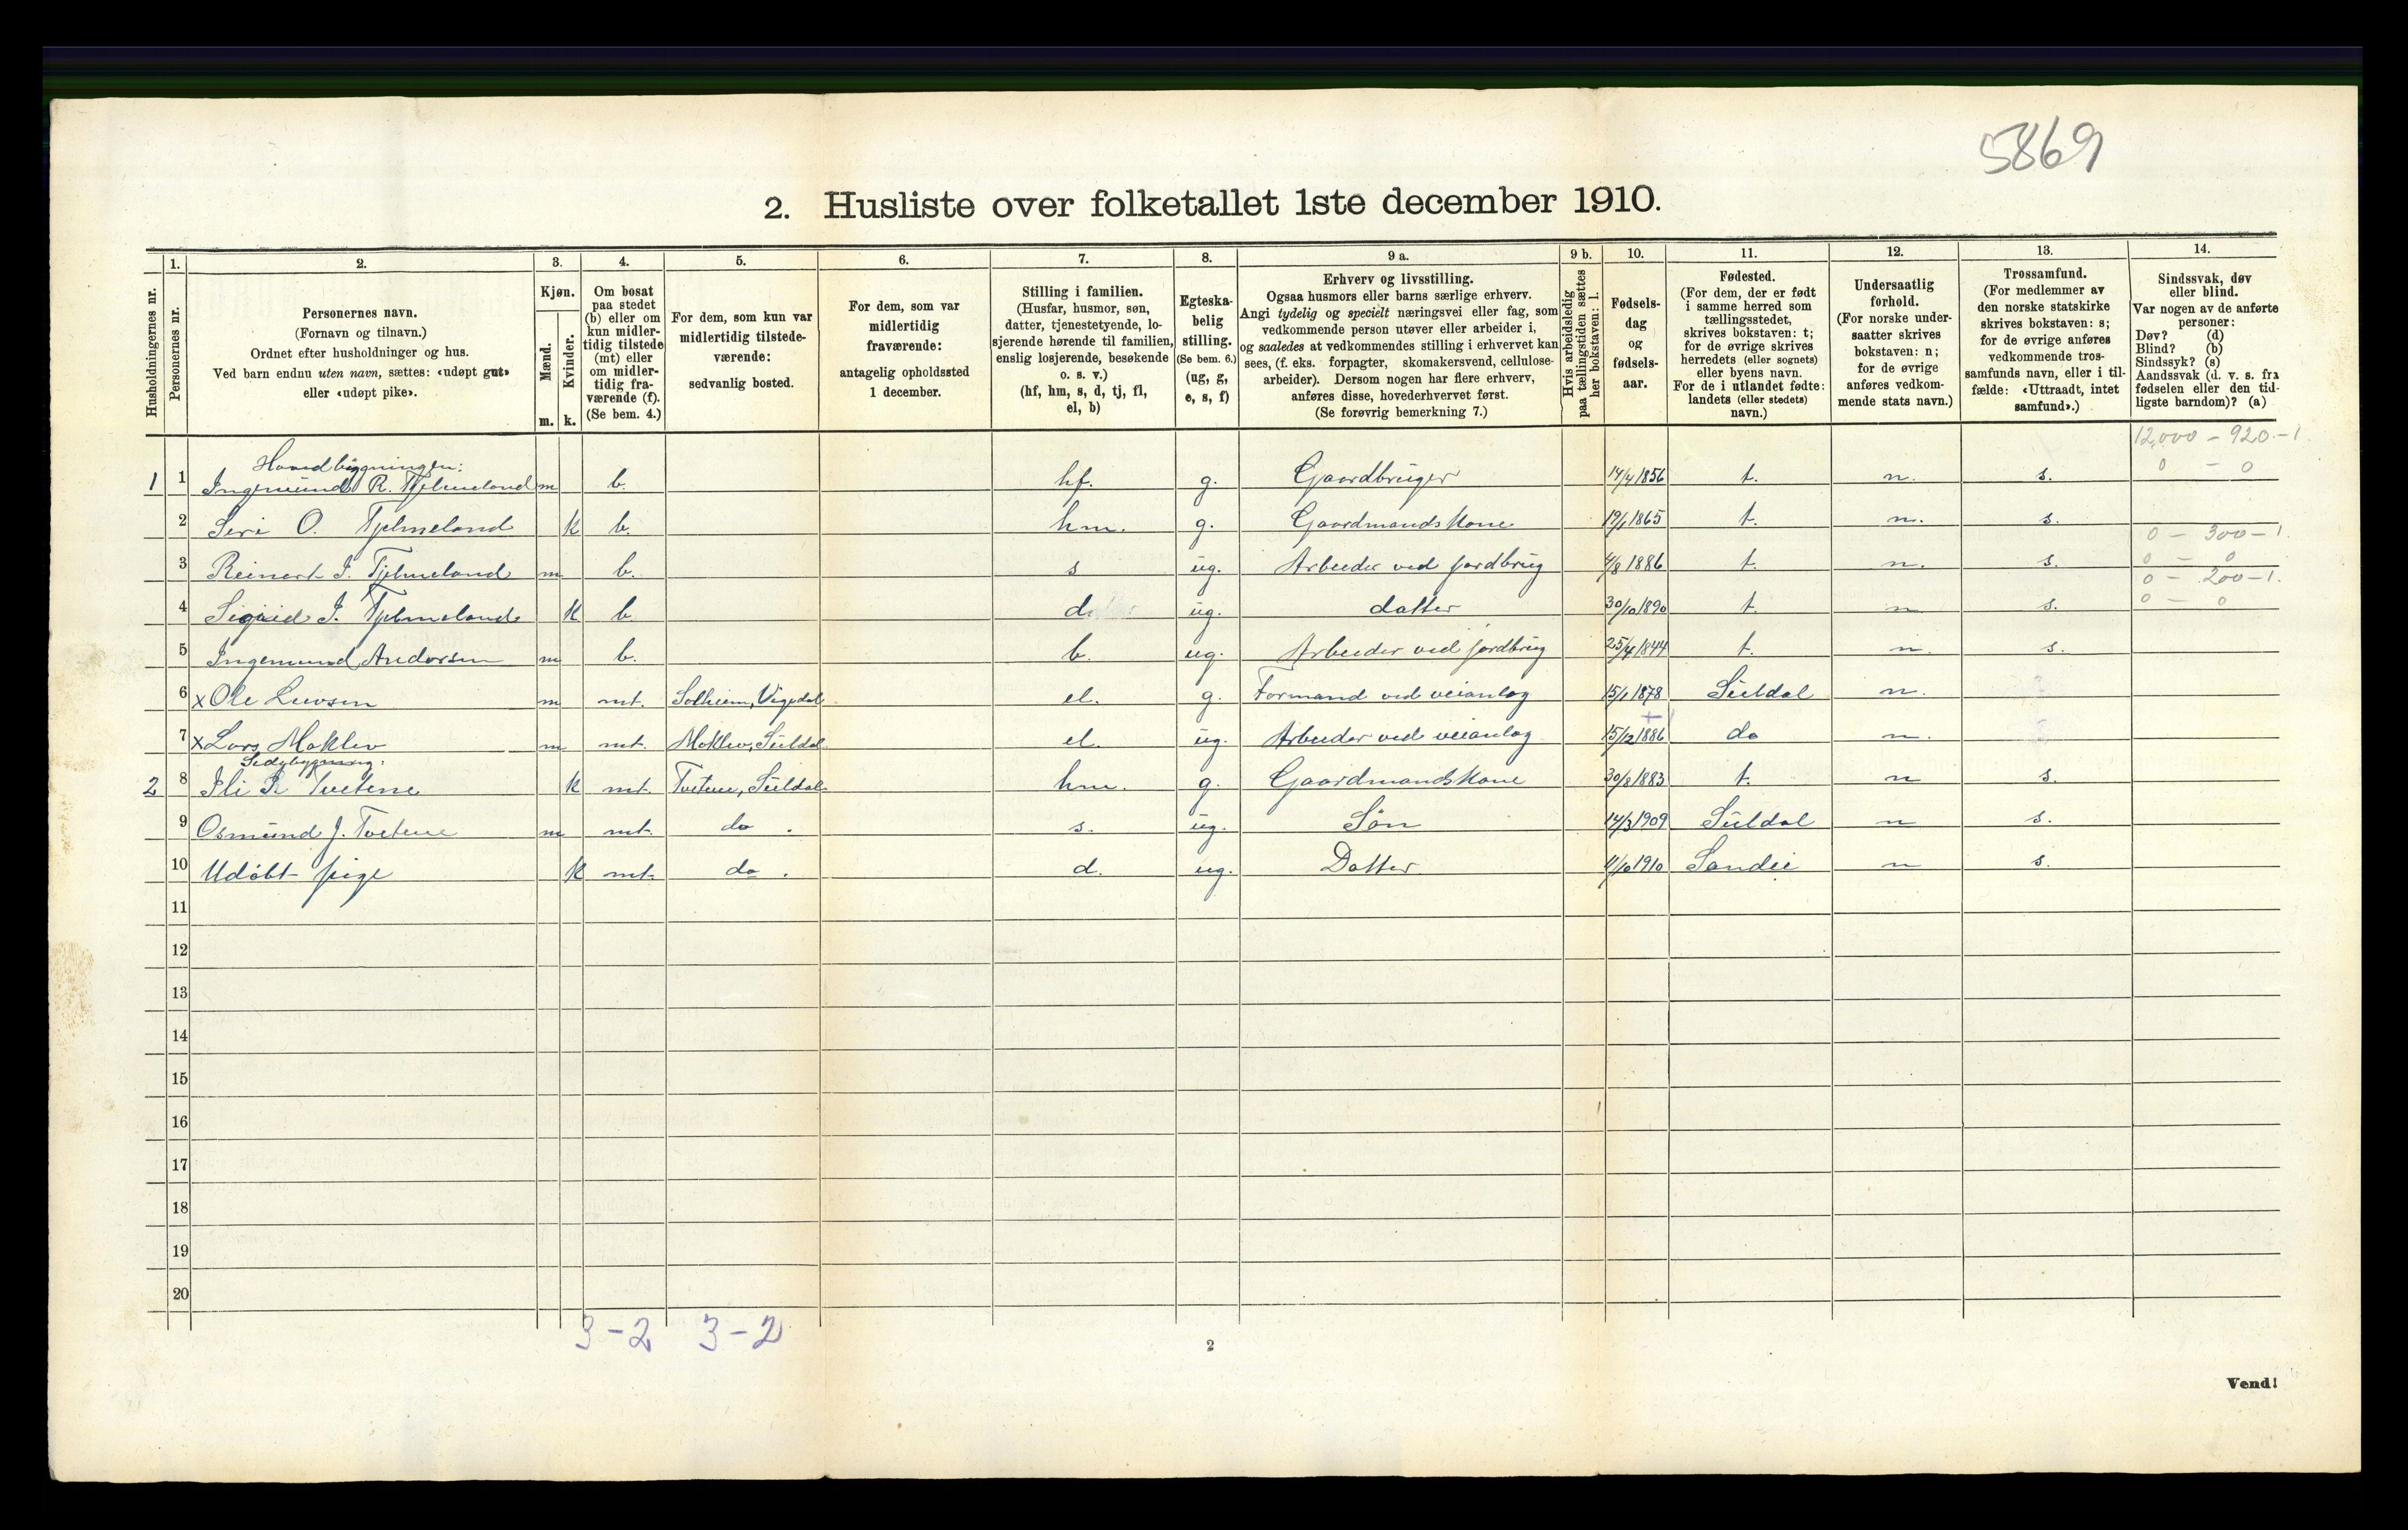 5869
2. Husliste over folketallet 1ste december 1910.
Husholdningernes nr.
1.
Personernes nr.
2.
Personernes navn.
(Fornavn og tilnavn.)
Ordnet efter husholdninger og hus.
Ved barn endnu uten navn, sættes: «udøpt gut»
eller «udøpt pike».
3.
Kjøn.
Mænd.
m.
Kvinder.
k.
4.
Om bosat
paa stedet
(b) eller om
kun midler-
tidig tilstede
(mt) eller
om midler-
tidig fra-
værende (f).
(Se bem. 4.)
5.
For dem, som kun var
midlertidig tilstede-
værende:
sedvanlig bosted.
6.
For dem, som var
midlertidig
fraværende:
antagelig opholdssted
1 december.
7.
Stilling i familien.
(Husfar, husmor, søn,
datter, tjenestetyende, lo-
sjerende hørende til familien,
enslig losjerende, besøkende
o. s. v.)
(hf, hm, s, d, tj, fl,
el, b)
8.
Egteska-
belig
stilling.
(Se bem. 6.)
(ug, g,
e, s, f)
9 a.
Erhverv og livsstilling.
Ogsaa husmors eller barns særlige erhverv.
Angi tydelig og specielt næringsvei eller fag, som
vedkommende person utøver eller arbeider i,
og saaledes at vedkommendes stilling i erhvervet kan
sees, (f. eks. forpagter, skomakersvend, cellulose-
arbeider). Dersom nogen har flere erhverv,
anføres disse, hovederhvervet først.
(Se forøvrig bemerkning 7.)
9 b.
Hvis arbeidsledig
paa tællingstiden sættes
her bokstaven: l.
10.
Fødsels-
dag
og
fødsels-
aar.
11.
Fødested.
(For dem, der er født
i samme herred som
tællingsstedet,
skrives bokstaven: t;
for de øvrige skrives
herredets (eller sognets)
eller byens navn.
For de i utlandet fødte:
landets (eller stedets)
navn.)
12.
Undersaatlig
forhold.
(For norske under-
saatter skrives
bokstaven: n;
for de øvrige
anføres vedkom-
mende stats navn.)
13.
Trossamfund.
(For medlemmer av
den norske statskirke
skrives bokstaven: s;
for de øvrige anføres
vedkommende tros-
samfunds navn, eller i til-
fælde: «Uttraadt, intet
samfund».)
14.
Sindssvak, døv
eller blind.
Var nogen av de anførte
personer:
Døv? (d)
Blind? (b)
Sindssyk? (s)
Aandssvak (d. v. s. fra
fødselen eller den tid-
ligste barndom)? (a)
12,000 - 920. - 1.
0 - 0
Hovedbygningen:
1 1 Ingemund R. Tjelmeland m b. hf. g. Gaardbruger 14/4 1856 t. n. s.
2 Siri O. Tjelmeland k b. hm. g. Gaardmandskone 19/1 1865 t. n. s.
0 - 300 - 1.
0 - 0
3 Reinert I. Tjelmeland m b. s ug. Arbeider ved jordbrug 4/8 1886 t. n. s.
0 - 200 - 1.
0 - 0
4 Sigrid I. Tjelmeland k b d ug. datter 30/10 1890 t. n s.
5 Ingemund Andersen m b. b. ug. Arbeider ved jordbrug 25/4 1844 t. n. s.
6 x Ole m mt. Solheim, Vigedal el. g. Formand ved veianlæg 15/1 1878 Suldal n.
7 x Lars Moklev m mt. Moklev, Suldal el. ug. Arbeider ved veianlæg 15/12 1886 do n.
Sidebygning:
2 8 Ili R Tvetene k mt. Tvetene, Suldal hm. g. Gaardmandskone 30/8 1883 t. n s.
9 Osmund J. Tvetene m mt. do. s. ug. Søn 14/3 1909 Suldal n s.
10 Udøbt pige k mt. do. d. ug. Datter 4/10 1910 Sandei n s.
11
12
13
14
15
16
17
18
19
20
3-2 3-2
2
Vend!